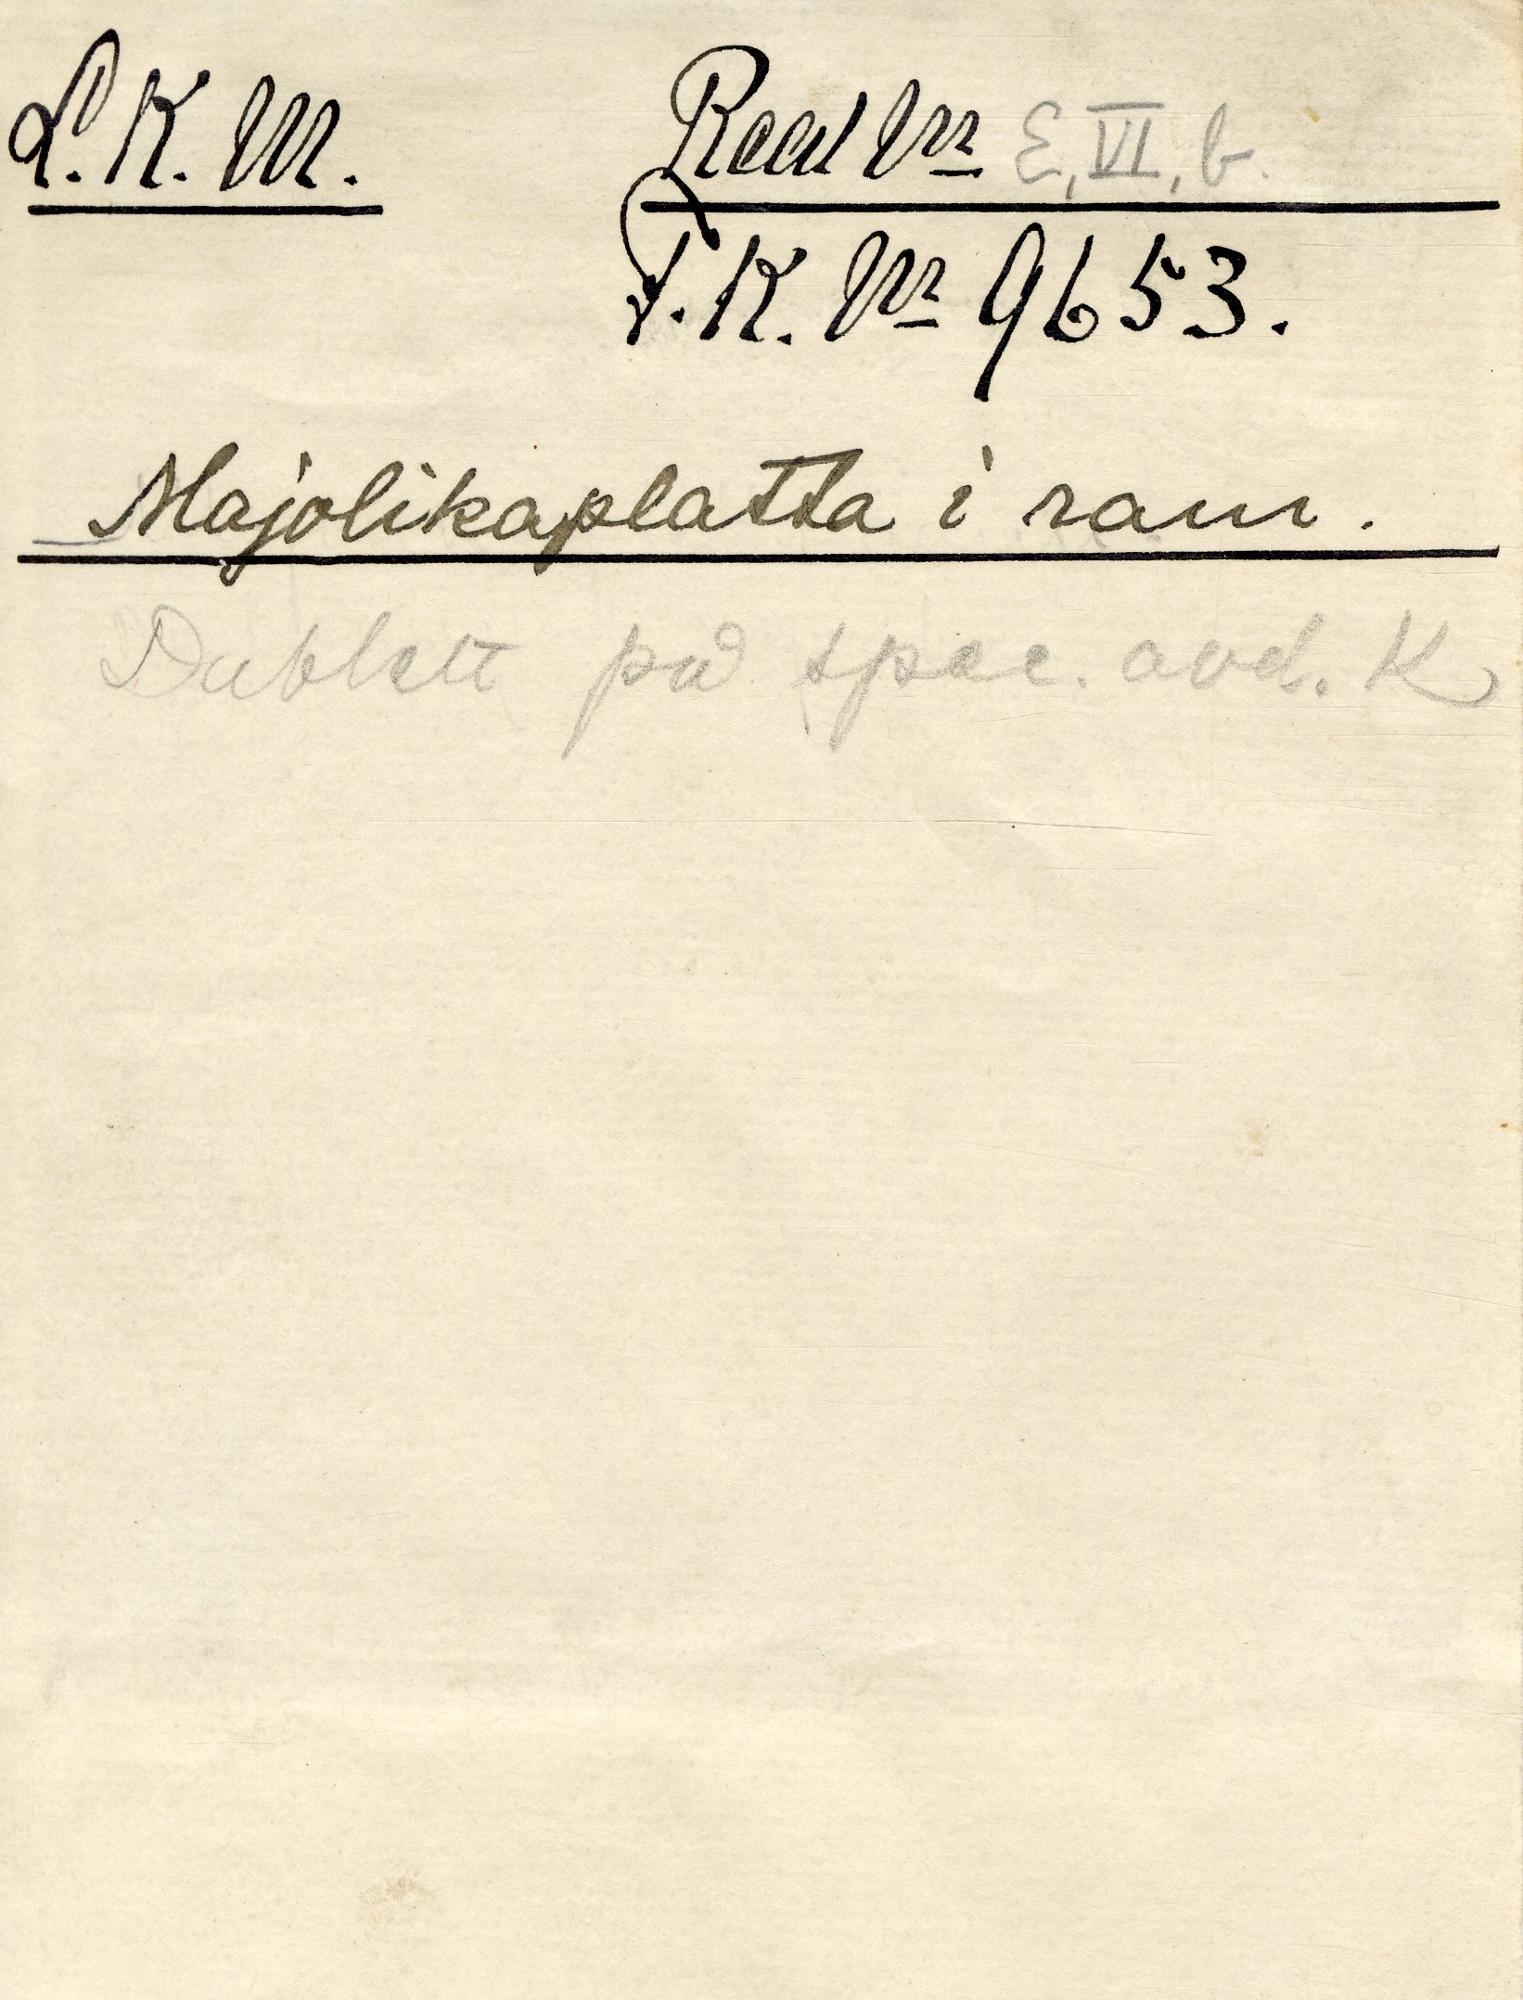 L. K. M. Real Nr E, VI, b.
F. K. Nr 9653.
Majolikaplatta i ram.
Dublett på spec. avd. K